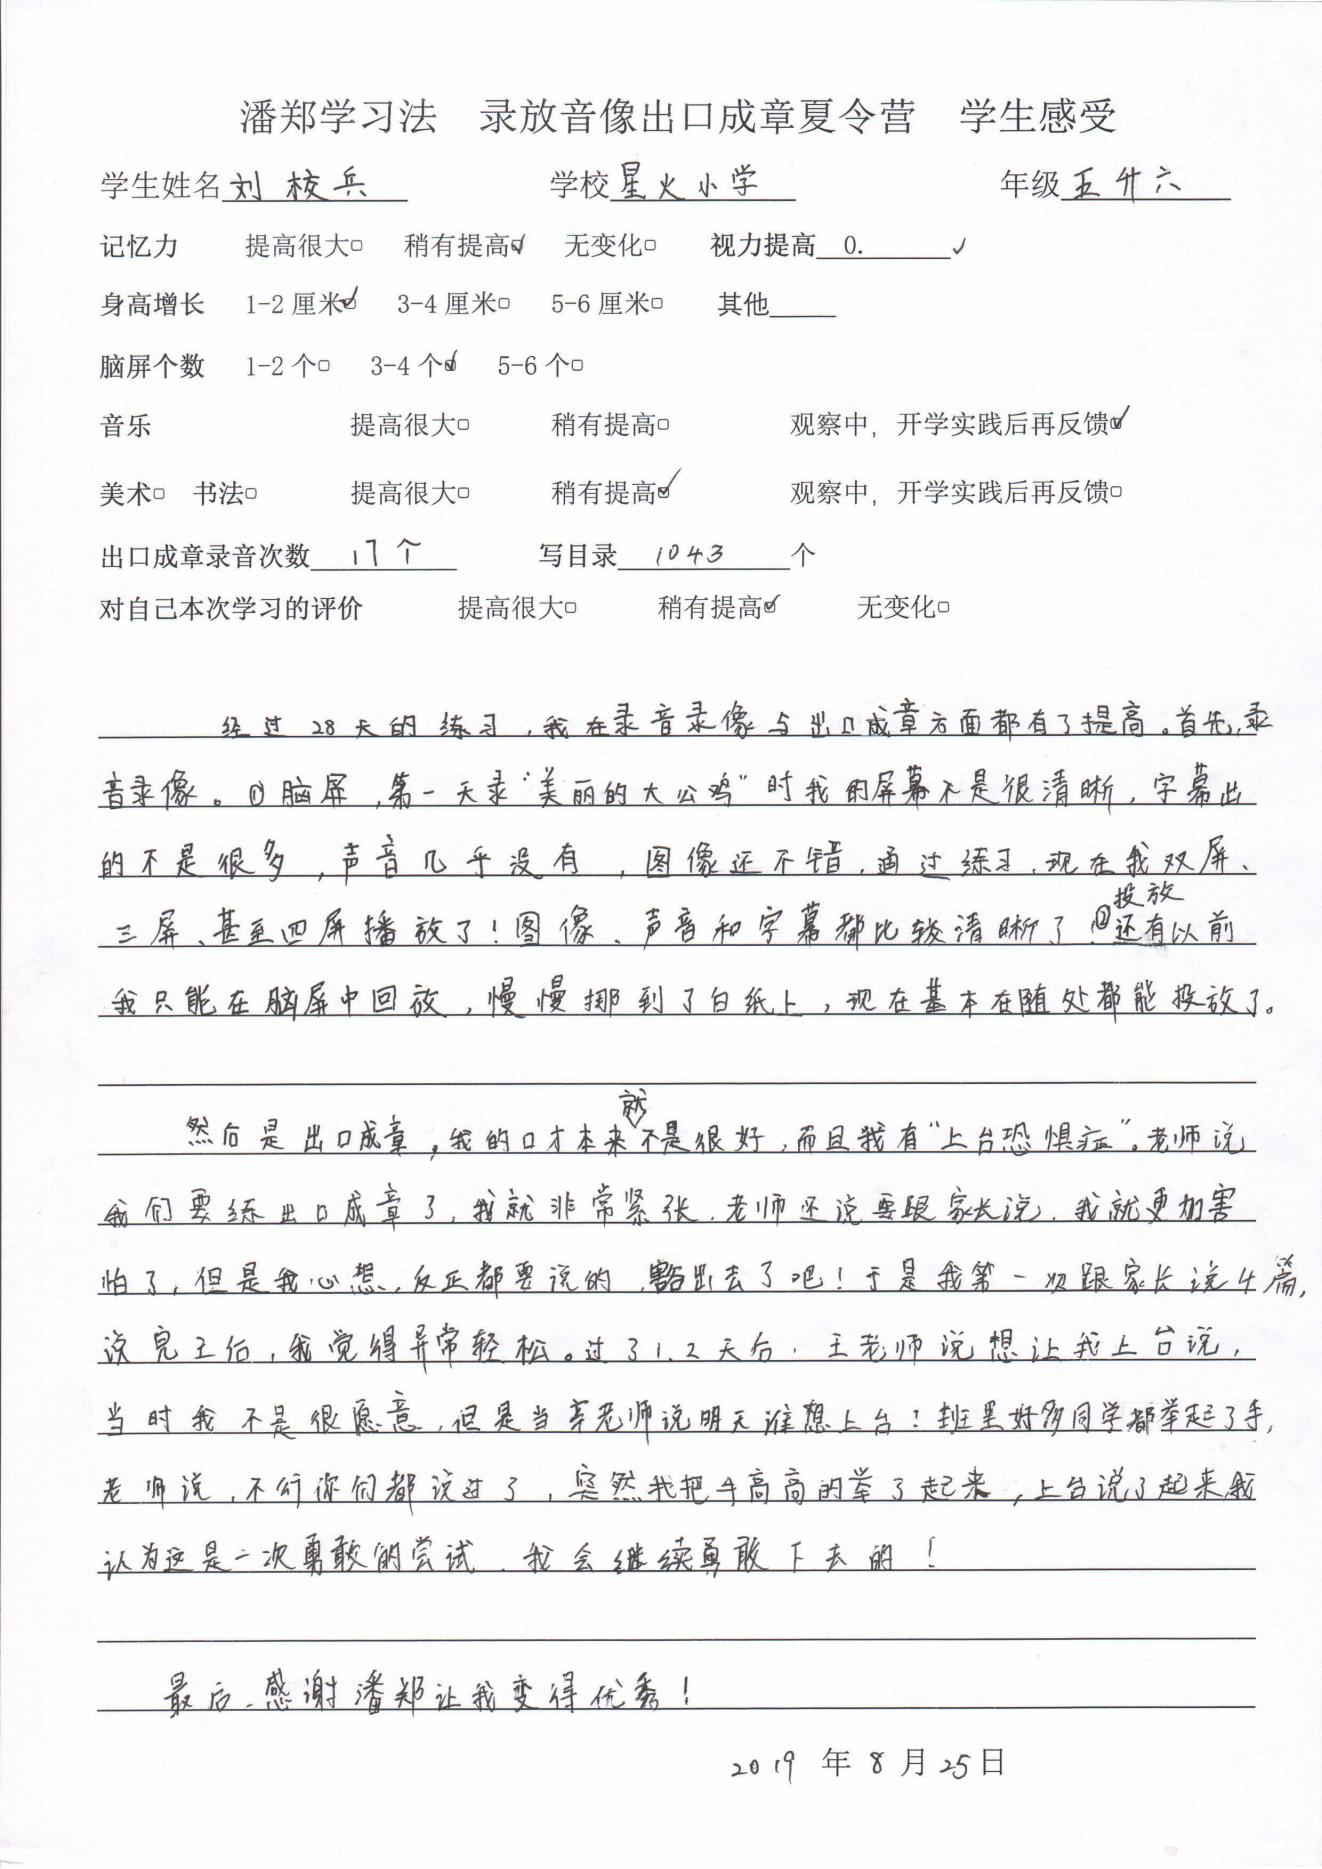 潘郑学习法 录放音像出口成章夏令营 学生感受
学生姓名 刘校兵 学校 星火小学 年级 五升六
记忆力 提高很大□ 稍有提高☑ 无变化□ 视力提高 0. ✓
身高增长 1-2厘米☑ 3-4厘米□ 5-6厘米□ 其他
脑屏个数 1-2个□ 3-4个☑ 5-6个□
音乐 提高很大□ 稍有提高□ 观察中，开学实践后再反馈☑
美术□ 书法□ 提高很大□ 稍有提高☑ 观察中，开学实践后再反馈□
出口成章录音次数 17个 写目录 1043 个
对自己本次学习的评价 提高很大□ 稍有提高☑ 无变化□
经过28天的练习，我在录音录像与出口成章方面都有了提高。首先，录
音录像。①脑屏，第一天录“美丽的大公鸡”时我的屏幕不是很清晰，字幕出
的不是很多，声音几乎没有，图像还不错，通过练习，现在我双屏、
三屏、甚至四屏播放了！图像、声音和字幕都比较清晰了！②投放还有以前
我只能在脑屏中回放，慢慢挪到了白纸上，现在基本在随处都能投放了。
然后是出口成章，我的口才本来就不是很好，而且我有“上台恐惧症”。老师说
我们要练出口成章了，我就非常紧张，老师还说要跟家长说，我就更加害
怕了，但是我心想，反正都要说的，豁出去了吧！于是我第一次跟家长说4篇，
说完王后，我觉得异常轻松。过了1.2天后，王老师说想让我上台说，
当时我不是很愿意，但是当辛老师说明天谁想上台！班里好多同学都举起了手，
老师说，不行你们都说过了，突然我把手高高的举了起来，上台说了起来，我
认为这是一次勇敢的尝试，我会继续勇敢下去的！
最后，感谢潘郑让我变得优秀！
2019年8月25日